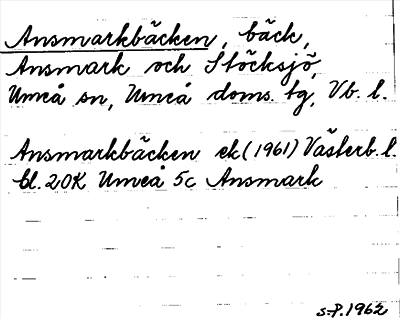 Ansmarkbäcken, bäck,
Ansmark och Stöcksjö,
Umeå sn, Umeå doms. tg, Vb. l.
Ansmarkbäcken ek (1961) Västerb. l.
bl. 20K Umeå 5c Ansmark
S-P. 1962